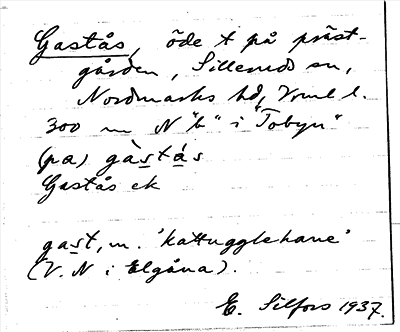 Gastås, öde t på präst-
gården, Silleruds sn,
Nordmarks hd, Vrml l.
300 m N "b" i "Tobyn"
(pa) gàstás
Gastås ek
gast, m. 'kattugglehane'
(V. N i Elgåna).
E. Silfors 1937.